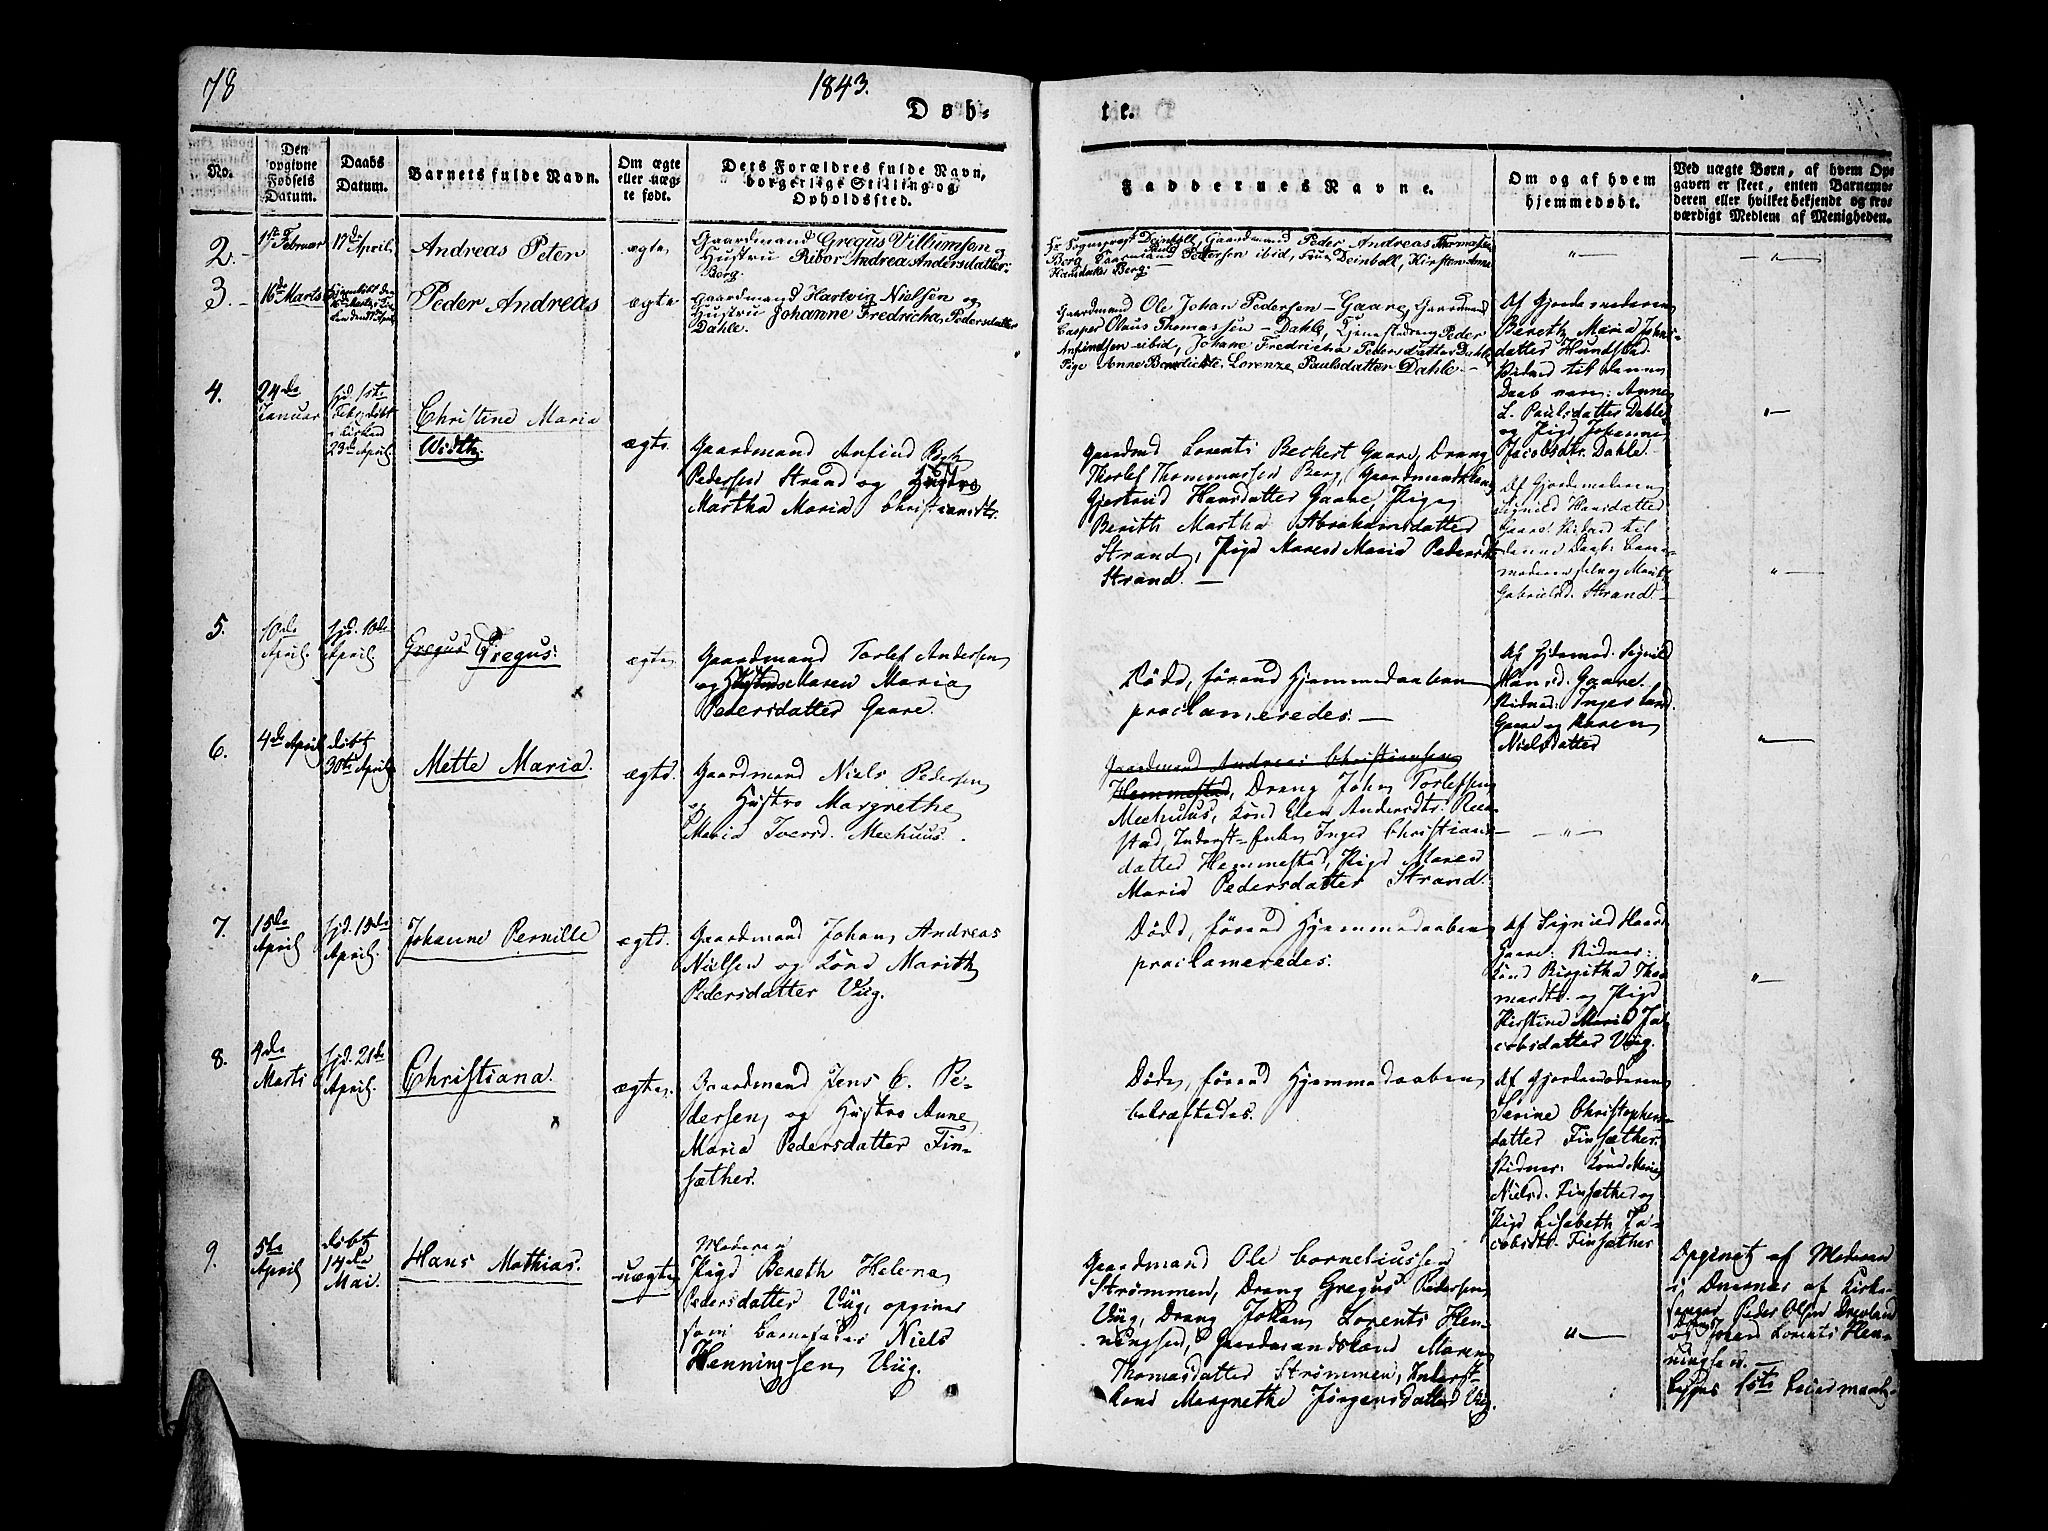 78
1843.
Døb-
te.
No.
Den opgivne Fødsels Datum.
Daabs Datum.
Barnets fulde Navn.
Om ægte eller uægte født.
Dets Forældres fulde Navn, borgerlige Stilling og Opholdssted.
Faddernes Navne.
Om og af hvem hjemmedøbt.
Ved uægte Børn, af hvem Opgaven er skeet, enten Barnemoderen eller hvilket bekjendt og troværdigt Medlem af Menigheden.
2.
1ste Februar
17de April
Andreas Peter
ægte
Gaardmand Gregus Villumsen og
Hustru Ribor Andrea Andersdatter
Borg.
Hr. Sogneprest Deinboll, Gaardmand Peder Andreas Thomassen
Berg, Pedersen ibid, Frue Deinboll, Kirsten Anne
Hansdatter Berg.
3.
16de Marts
Peder Andreas
ægte
Gaardmand Hartvig Nielsen og
Hustru Johanne Fredricha Pedersdatter
Dahle.
Gaardmand Ole Johan Pedersen - Gaare, Gaardmand
Casper Olaus Thomassen - Dahle, Tjenestedreng Peder
Anfindsen ibid, Johane Fredricha Pedersdatter Dahle
Pige Anne Benedichte Lorenze Paulsdatter Dahle -
Af Gjordemoderen
Bereth Maria Johns-
datter Hundstad.
Vidner til denne
Daab vare: Anne
L. Paulsdatter Dahle
og Pige Johanne
Jacobsdtr. Dahle.
4.
24de Januar
hjd. 1ste Febr. døbt i Kirken 23de April
Christine Maria
Width
ægte
Gaardmand Anfind Rogh
Pedersen Strand og Hustro
Martha Maria Christiansdtr.
Gaardmd Lorents Beckert Gaare, Dreng
Thorlef Thommassen Berg, Gaardmandskone
Gjertrud Hansdatter Gaare, Pige
Berith Martha Abrahamsdatter
Strand, Pige Maren Maria Pedersdtr
Strand. -
Af Gjordemoderen
Signild Hansdatter
Gaare. Vidner til
denne Daab: Barne-
moderen selv og Marith
Gabrielsd. Strand
5.
10de April
hjd. 10de April
Gregus Gregus.
ægte
Gaardmand Torlef Andersen
og Hustro Maren Maria
Pedersdatter Gaare.
Døde, førend Hjemmedaaben
proclameredes. -
Af Gjdemod. Signild
Hansd. Gaare.
Vidner: Inger
Gaare og Maren
Nielsdatter
6.
4de April
døbt 30te April
Mette Maria.
ægte
Gaardmand Niels Pedersen
og Hustro Margrethe
Maria Iversd. Meehuus.
Gaardmand Andreas Christiansen
Hemmestad, Dreng John Torlefsen
Meehuus, Kone Elen Andersdtr. Ree-
stad, Inderst-Enke Inger Christians-
datter Hemmestad, Pige Maren
Maria Pedersdatter Strand.
7.
15de April
hjd. 15de April.
Johanne Pernille
ægte
Gaardmand Johan Andreas
Nielsen og Kone Marith
Pedersdatter Viig.
Døde, førend Hjemmedaaben
proclameredes.
Af Signild Hansd.
Gaare: Vidner:
Kone Birgitha Tho-
masdtr. og Pige
Kirstine Marie Ja-
cobsdatter Viig.
8.
4de Marts
hjd. 21de April.
Christiana.
ægte
Gaardmand Jens C. Pe-
dersen og Hustro Anne
Maria Pedersdatter Fin-
sæther.
Døde, førend Hjemmedaaben
bekræftedes.
Af Gjordemoderen
Serine Christophers-
datter Finsæther.
Vidner: Kone Maria
Nielsd. Finsæther og
Pige Lisabeth Ja-
cobsdtr. Finsæther
9.
5te April
døbt 14de Mai.
Hans Mathias.
uægte
Moderen
Pige Bereth Helena
Pedersdatter Viig, opgiver
som Barnefader Niels
Henningsen Viig.
Gaardmand Ole Corneliussen
Strømmen, Dreng Gregus Pedersen
Viig, Dreng Johan Lorents Hen-
ningsen, Gaardmandskone Maren
Thomasdatter Strømmen, Inderst-
kone Margrethe Jørgensdatter Viig.
Opgivet af Moderen
i Overvær af Kirke-
sanger Peder Olsen Drevland
og Dreng Johan Lorents Hen-
ningsen. -
Begges 1ste Leiermaal.